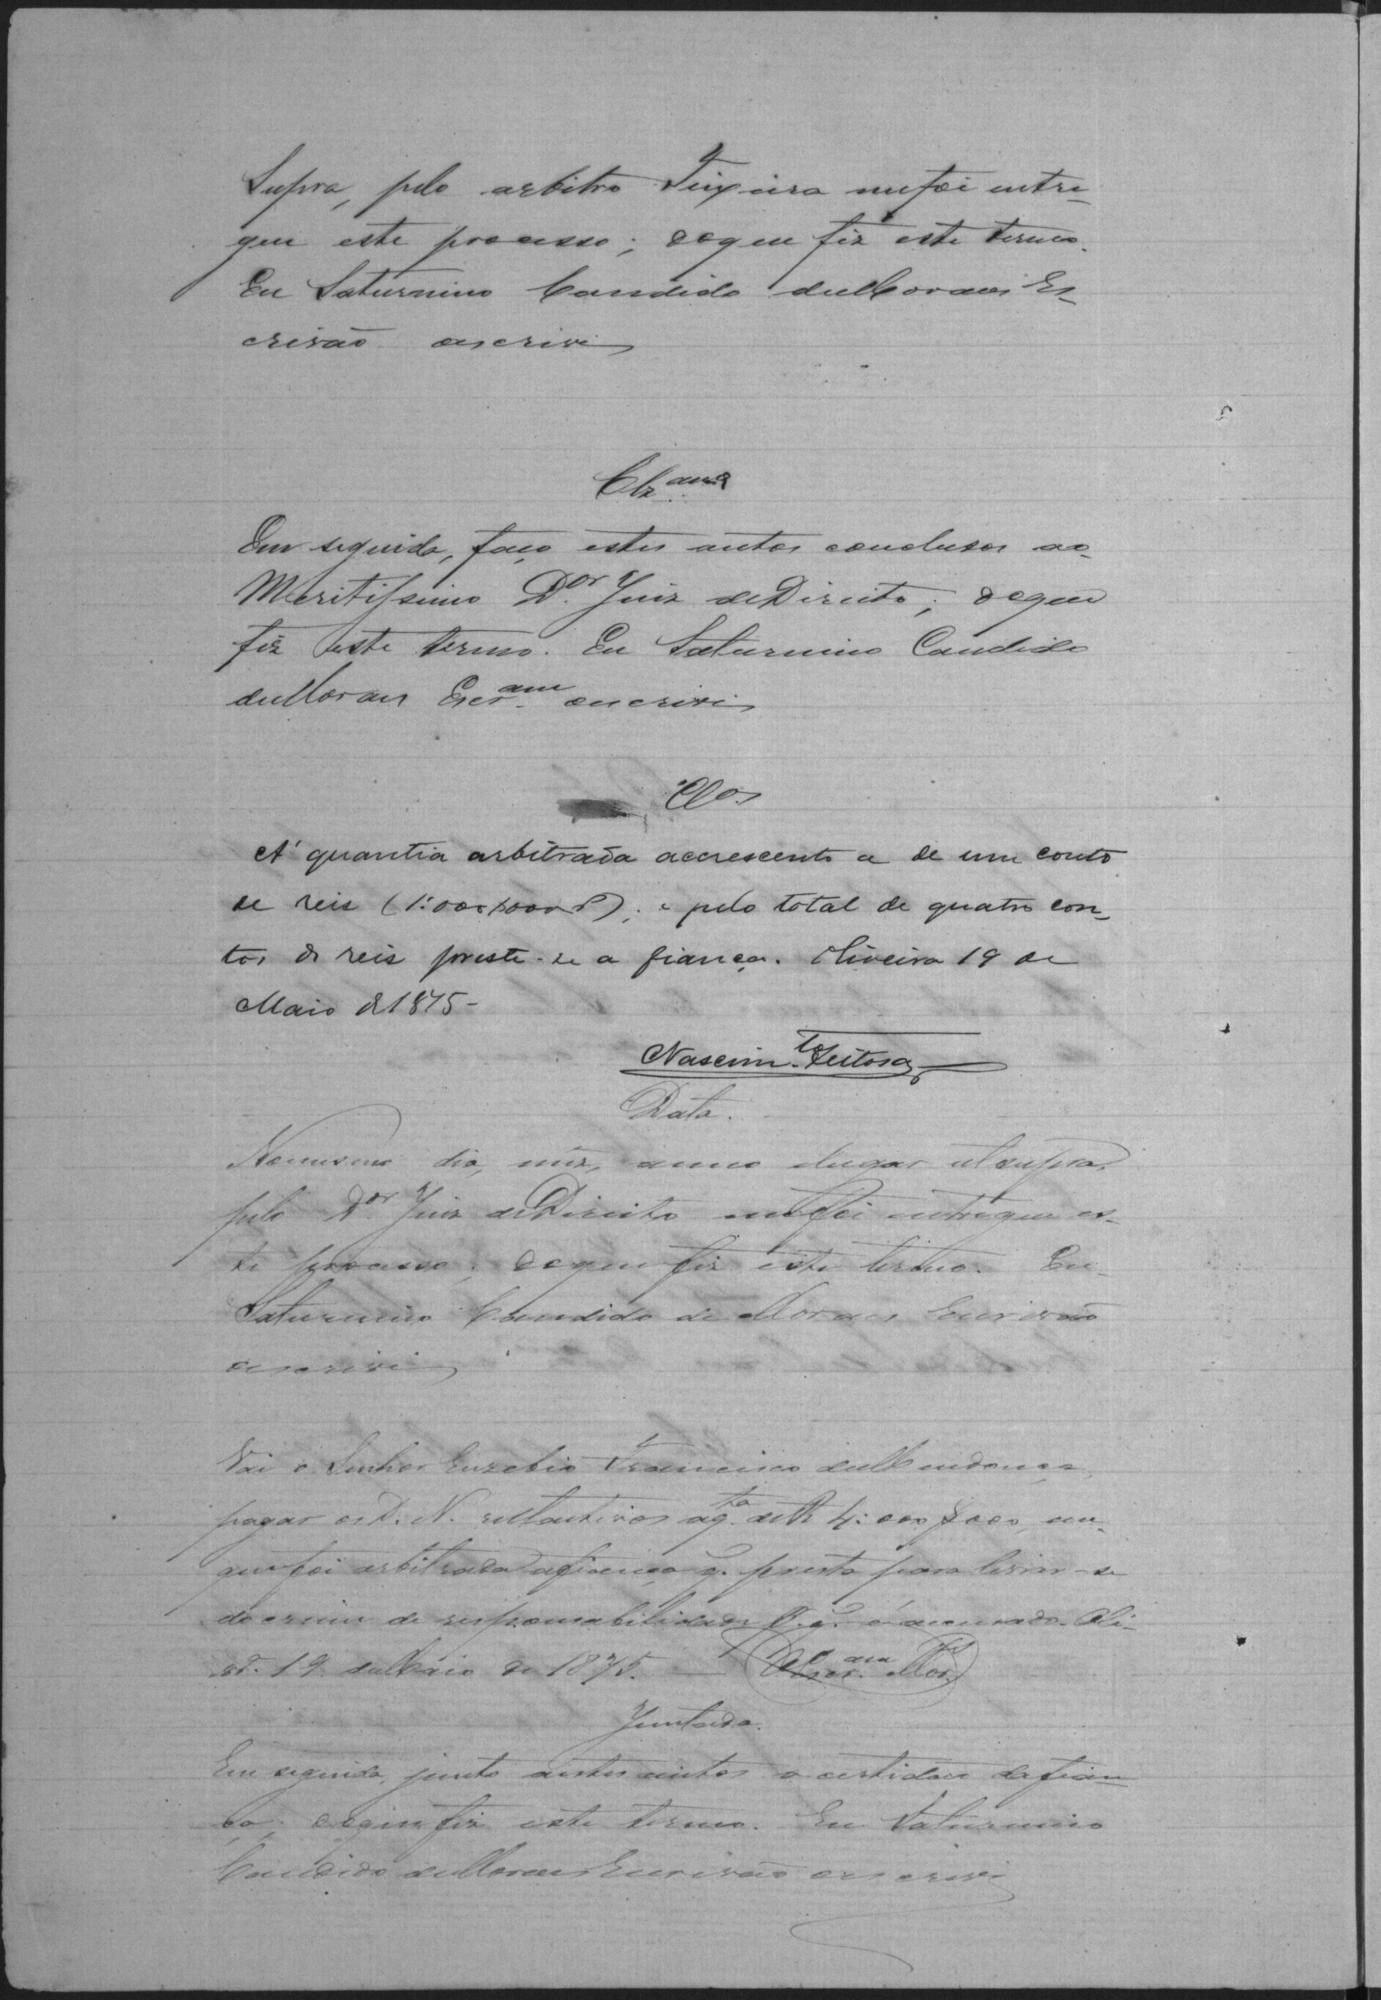 Supra, pelo arbitro Teixeira me foi entre-
gue este processo; do que fiz este termo.
Eu Saturnino Candido de Moraes Es-
crivão o escrivi
Clz.am
Em seguida, faço estes autos conclusos ao
Meritissimo D.or Juiz de Direito; do que
fiz este termo. Eu Saturnino Candido
de Moraes Escr.am o escrivi
Clos
A' quantia arbitrada accrescento a de um conto
de reis (1:000$000rs); e pelo total de quatro con-
tos de reis preste-se a fiança. Oliveira 19 de
Maio de 1875-
Nascim.to Feitosa
Data.
No mesmo dia, mez, anno e lugar ut supra,
pelo D.or Juiz de Direito me foi entregue es-
te processo; do que fiz este termo. Eu
Saturnino Candido de Moraes Escrivão
o escrivi
Vai o Senhor Euzebio Francisco de Mendonça
pagar os D. N. relativos a q.ta de R 4:000$000, em
que foi arbitrada a fiança q. presta para livrar-se
do crime de responsabilidade p. q. é accusado. Oli-
vr.a 19 de Maio de 1875. O Escr.am Mor.s
Juntada.
Em seguida, junto a estes autos a certidão da fian-
ça; do que fiz este termo. Eu Saturnino
Candido de Moraes Escrivão o escrivi